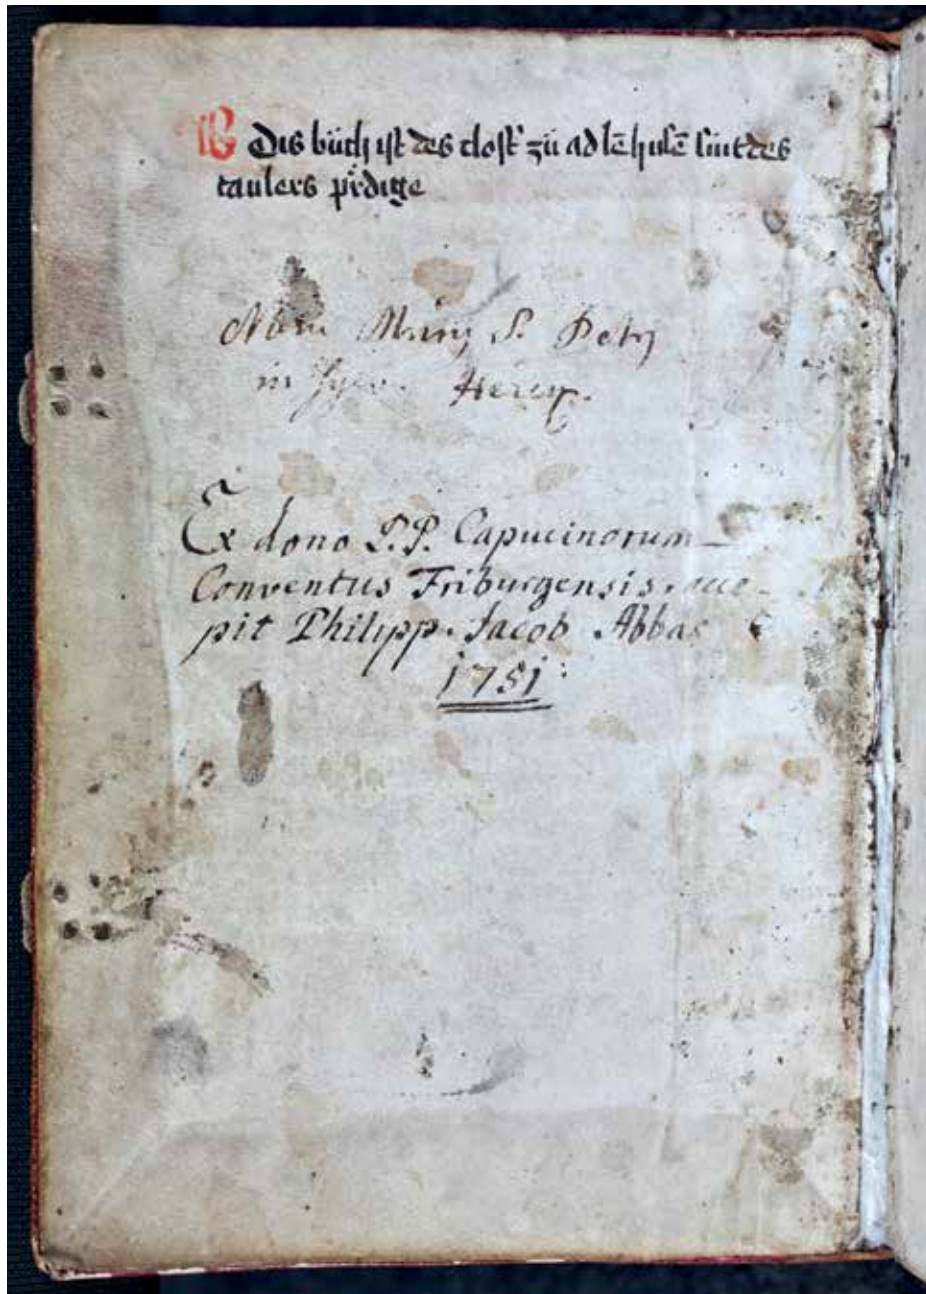 Dis bůch ist des clost' zů adlēhusē sint des
taulers p'dige
Monrij S. Petrj
in Herc.
Ex dono P.P. Capucinorum
Conventus Friburgensis. acce-
pit Philipp. Jacob Abbas
1751